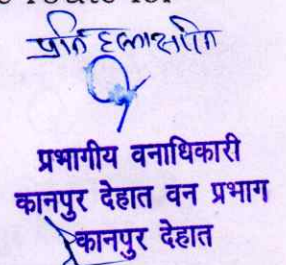 e route for
प्रति हस्ताक्षरित
प्रभागीय वनाधिकारी
कानपुर देहात वन प्रभाग
कानपुर देहात